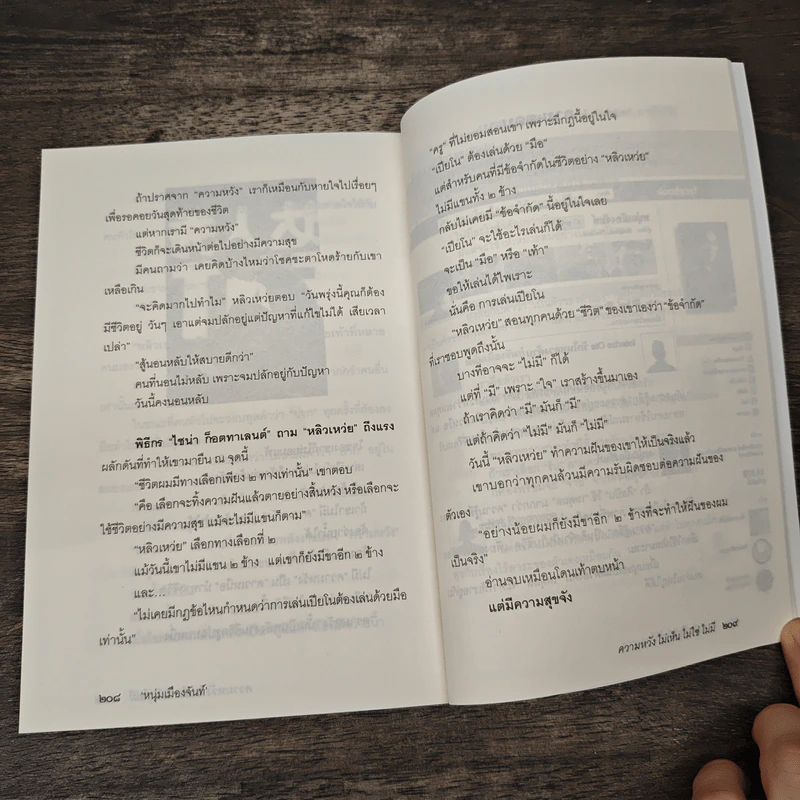 ถ้าปราศจาก “ความหวัง” เราก็เหมือนกับหายใจไปเรื่อยๆ
เพื่อรอคอยวันสุดท้ายของชีวิต
แต่หากเรามี “ความหวัง”
ชีวิตก็จะเดินหน้าต่อไปอย่างมีความสุข
มีคนถามว่า เคยคิดบ้างไหมว่าโชคชะตาโหดร้ายกับเขา
เหลือเกิน
“จะคิดมากไปทำไม” หลิวเหว่ยตอบ “วันพรุ่งนี้คุณก็ต้อง
มีชีวิตอยู่ วันๆ เอาแต่จมปลักอยู่แต่ปัญหาที่แก้ไขไม่ได้ เสียเวลา
เปล่า”
“สู้นอนหลับให้สบายดีกว่า”
คนที่นอนไม่หลับ เพราะจมปลักอยู่กับปัญหา
วันนี้คงนอนหลับ
พิธีกร “ไชน่า ก็อตทาเลนต์” ถาม “หลิวเหว่ย” ถึงแรง
ผลักดันที่ทำให้เขามายืน ณ จุดนี้
“ชีวิตผมมีทางเลือกเพียง ๒ ทางเท่านั้น” เขาตอบ
“คือ เลือกจะทิ้งความฝันแล้วตายอย่างสิ้นหวัง หรือเลือกจะ
ใช้ชีวิตอย่างมีความสุข แม้จะไม่มีแขนก็ตาม”
“หลิวเหว่ย” เลือกทางเลือกที่ ๒
แม้วันนี้เขาไม่มีแขน ๒ ข้าง แต่เขาก็ยังมีขาอีก ๒ ข้าง
และ...
“ไม่เคยมีกฎข้อไหนกำหนดว่าการเล่นเปียโนต้องเล่นด้วยมือ
เท่านั้น”
๒๐๘ ‘หนุ่มเมืองจันท์’
“ครู” ที่ไม่ยอมสอนเขา เพราะมีกฎนี้อยู่ในใจ
“เปียโน” ต้องเล่นด้วย “มือ”
แต่สำหรับคนที่มีข้อจำกัดในชีวิตอย่าง “หลิวเหว่ย”
ไม่มีแขนทั้ง ๒ ข้าง
กลับไม่เคยมี “ข้อจำกัด” นี้อยู่ในใจเลย
“เปียโน” จะใช้อะไรเล่นก็ได้
จะเป็น “มือ” หรือ “เท้า”
ขอให้เล่นได้ไพเราะ
นั่นคือ การเล่นเปียโน
“หลิวเหว่ย” สอนทุกคนด้วย “ชีวิต” ของเขาเองว่า “ข้อจำกัด”
ที่เราชอบพูดถึงนั้น
บางทีอาจจะ “ไม่มี” ก็ได้
แต่ที่ “มี” เพราะ “ใจ” เราสร้างขึ้นมาเอง
ถ้าเราคิดว่า “มี” มันก็ “มี”
แต่ถ้าคิดว่า “ไม่มี” มันก็ “ไม่มี”
วันนี้ “หลิวเหว่ย” ทำความฝันของเขาให้เป็นจริงแล้ว
เขาบอกว่าทุกคนล้วนมีความรับผิดชอบต่อความฝันของ
ตัวเอง
“อย่างน้อยผมก็ยังมีขาอีก ๒ ข้างที่จะทำให้ฝันของผม
เป็นจริง”
อ่านจบเหมือนโดนเท้าตบหน้า
แต่มีความสุขจัง
ความหวัง ไม่เห็น ไม่ใช่ ไม่มี ๒๐๙